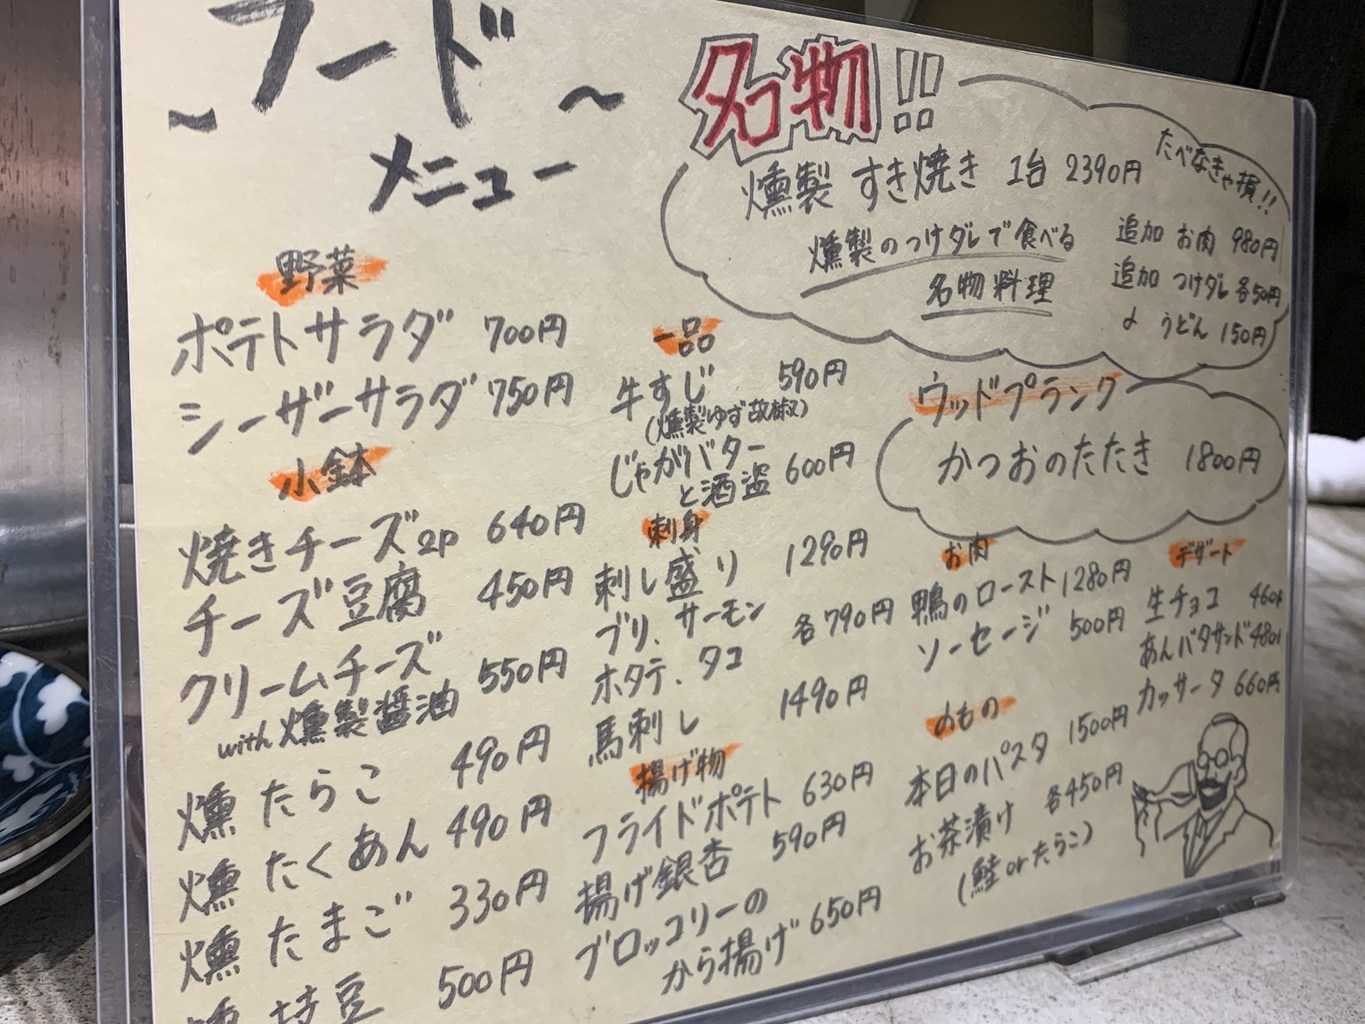 ~フード~
メニュー
野菜
ポテトサラダ 700円
シーザーサラダ 750円
小鉢
焼きチーズ2P 640円
チーズ豆腐 450円
クリームチーズ 550円
with 燻製醤油
燻 たらこ 490円
燻 たくあん 490円
燻 たまご 330円
燻 枝豆 500円
一品
牛すじ 590円
(燻製ゆず胡椒)
じゃがバター
と酒盗 600円
刺身
刺し盛り 1290円
ブリ、サーモン
ホタテ、タコ 各790円
馬刺し 1490円
揚げ物
フライドポテト 630円
揚げ銀杏 590円
ブロッコリーの
から揚げ 650円
名物!!
たべなきゃ損!!
燻製 すき焼き 1台 2390円
燻製のつけダレで食べる
名物料理
追加 お肉 980円
追加 つけダレ 各50円
〃 うどん 150円
ウッドプランク
かつおのたたき 1800円
お肉
鴨のロースト 1280円
ソーセージ 500円
〆もの
本日のパスタ 1500円
お茶漬け 各450円
(鮭 or たらこ)
デザート
生チョコ 460円
あんバタサンド 480円
カッサータ 660円